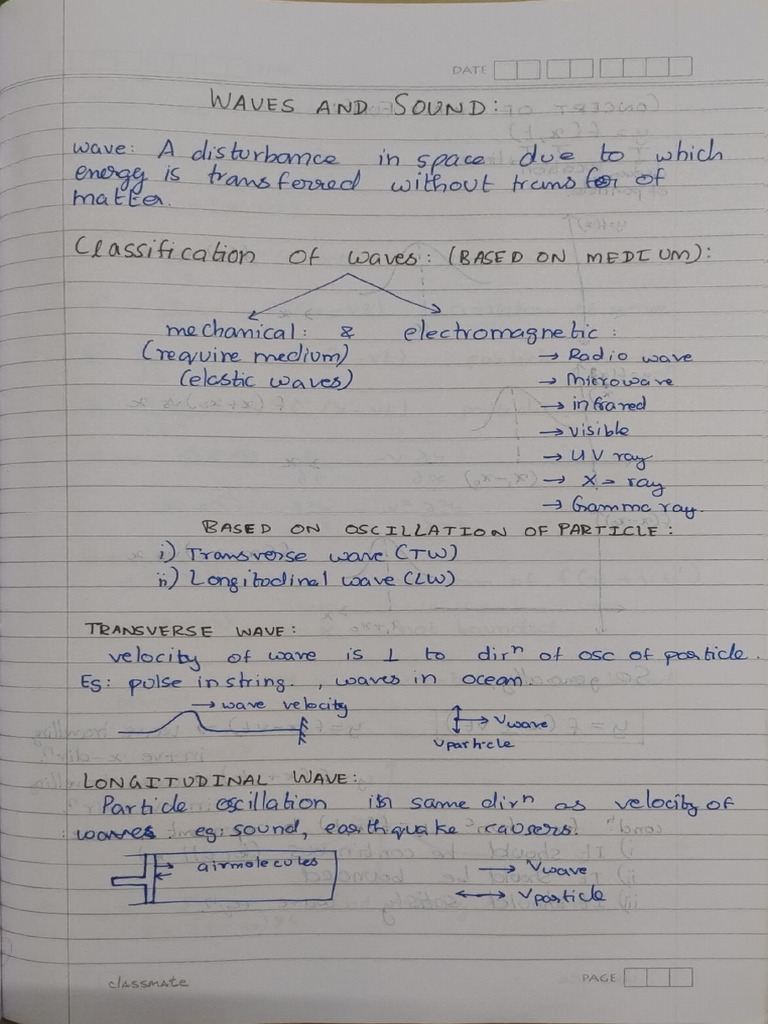 DATE
WAVES AND SOUND:
wave: A disturbance in space due to which
energy is transferred without transfer of
matter.
Classification of waves: (BASED ON MEDIUM):
mechanical: & electromagnetic:
(require medium) → Radio wave
(elastic waves) → Microwave
→ infrared
→ visible
→ UV ray
→ X-ray
→ Gamma ray.
BASED ON OSCILLATION OF PARTICLE:
i) Transverse wave (TW)
ii) Longitudinal wave (LW)
TRANSVERSE WAVE:
velocity of wave is ⊥ to dirⁿ of osc of particle.
Eg: pulse in string., waves in ocean.
→ wave velocity
→ Vwave
Vparticle
LONGITUDINAL WAVE:
Particle oscillation is in same dirⁿ as velocity of
waves eg: sound, earthquake
airmolecules → Vwave
↔ Vparticle
classmate PAGE